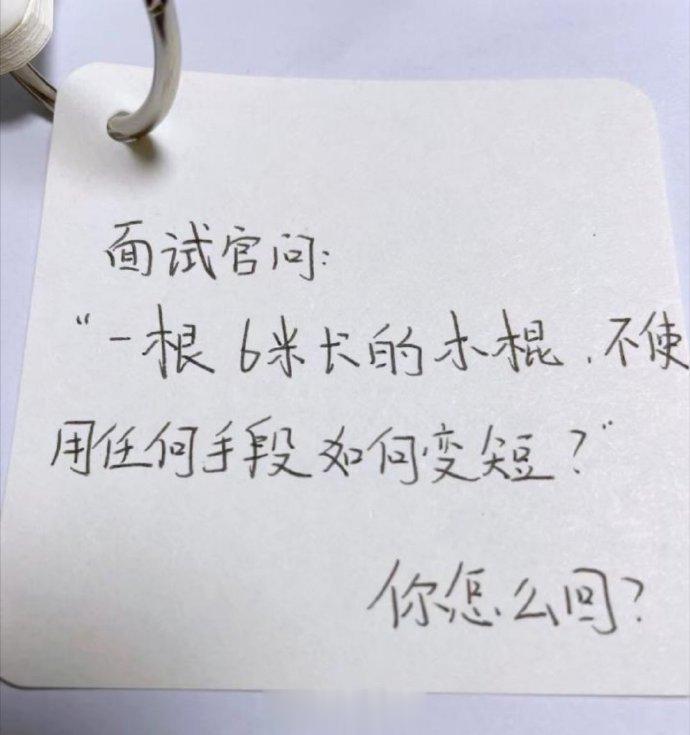 面试官问:
“一根6米长的木棍.不使
用任何手段如何变短?”
你怎么回?